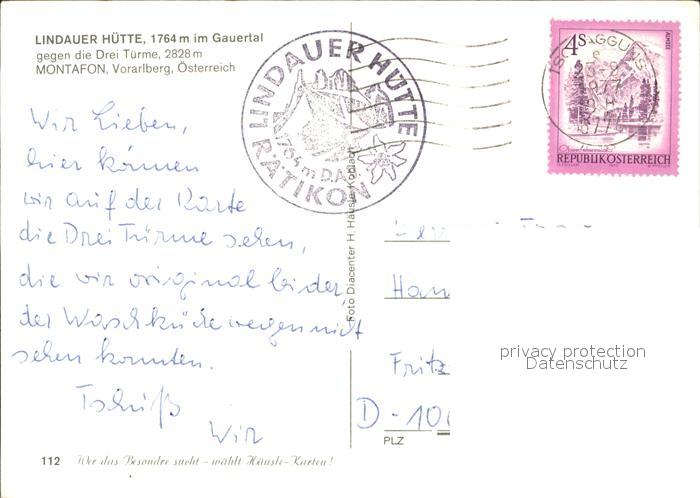 LINDAUER HÜTTE, 1764 m im Gauertal
gegen die Drei Türme, 2828 m
MONTAFON, Vorarlberg, Österreich
LINDAUER HÜTTE
1764 m D.A.
RÄTIKON
4S
ALMSEE
REPUBLIK ÖSTERREICH
6774
Wir Lieben,
hier können
wir auf der Karte
die Drei Türme sehen,
die wir original leider,
der Waschküche wegen nicht
sehen konnten.
Tschüß
Wir
Foto Diacenter H. Häusle Koblach
Fritz
D - 10
PLZ
privacy protection
Datenschutz
112 Wer das Besondre sucht - wählt Häusle-Karten!